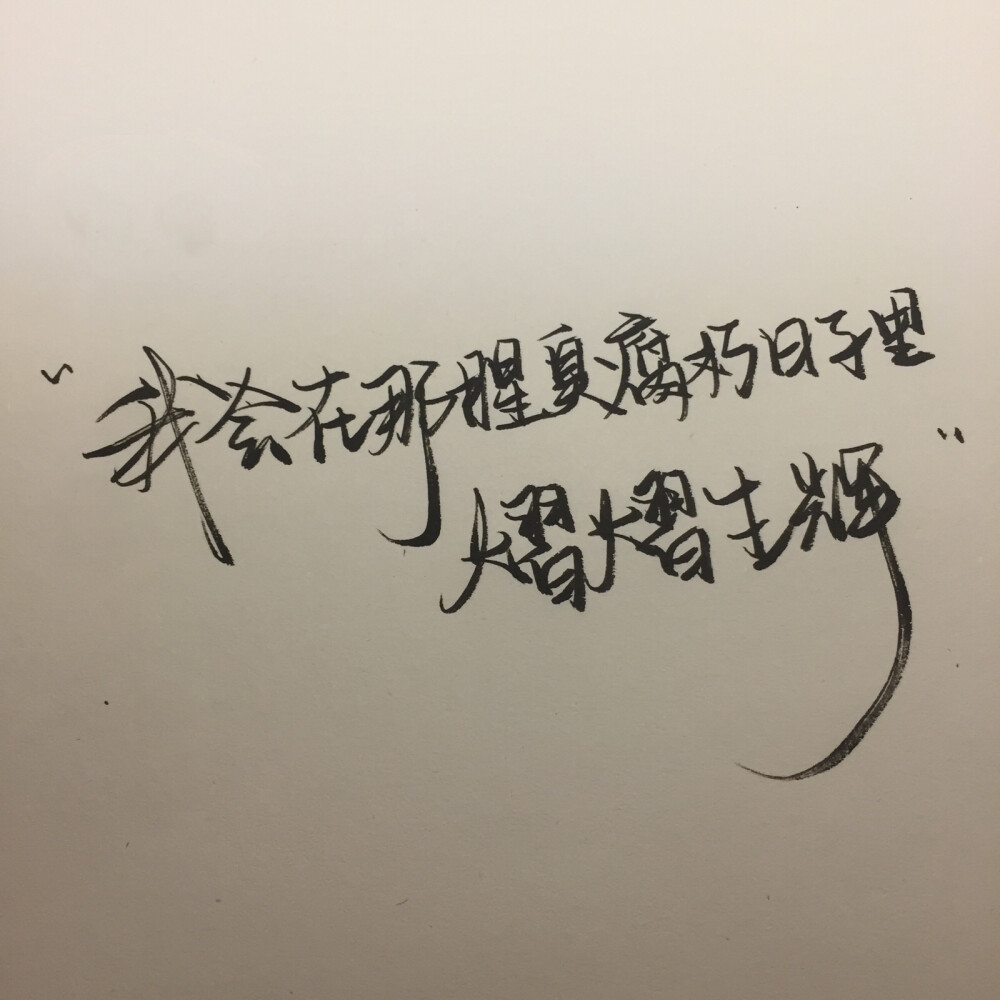 “我会在那腥臭腐朽日子里
熠熠生辉”